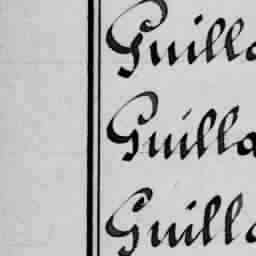 Guilla
Guilla
Guilla